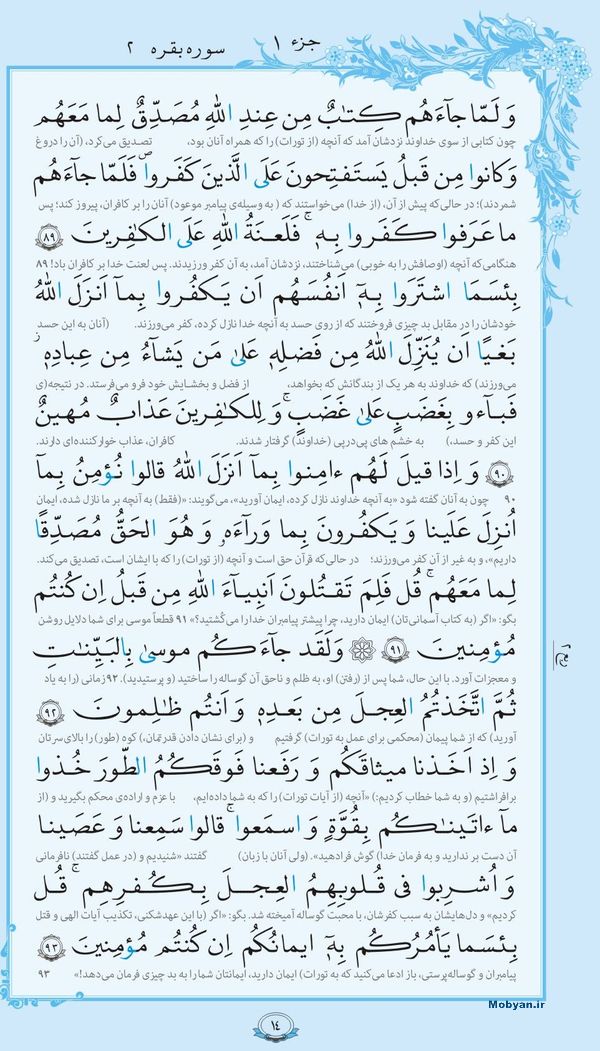 جزء ۱
سوره بقره ۲
وَ لَمّا جآءَهُم كِتٰبٌ مِن عِندِ اللهِ مُصَدِّقٌ لِما مَعَهُم
چون کتابی از سوی خداوند نزدشان آمد که آنچه (از تورات) را که همراه آنان بود، تصدیق می‌کرد، (آن را دروغ
وَكانوا مِن قَبلُ يَستَفتِحونَ عَلَى الَّذينَ كَفَروا فَلَمّا جآءَهُم
شمردند)؛ در حالی‌که پیش از آن، (از خدا) می‌خواستند که ( به وسیله‌ی پیامبر موعود) آنان را بر کافران، پیروز کند؛ پس
ما عَرَفوا كَفَروا بِهٖ ۚ فَلَعنَةُ اللهِ عَلَى الكٰفِرينَ ۸۹
هنگامی‌که آنچه (اوصافش را به خوبی) می‌شناختند، نزدشان آمد، به آن کفر ورزیدند. پس لعنت خدا بر کافران باد! ۸۹
بِئسَمَا اشتَرَوا بِهٖٓ اَنفُسَهُم اَن يَكفُروا بِمآ اَنزَلَ اللهُ
خودشان را در مقابل بد چیزی فروختند که از روی حسد به آنچه خدا نازل کرده، کفر می‌ورزند. (آنان به این حسد
بَغيًا اَن يُنَزِّلَ اللهُ مِن فَضلِهٖ عَلىٰ مَن يَشآءُ مِن عِبادِهٖ ۖ
می‌ورزند) که خداوند به هر یک از بندگانش که بخواهد، از فضل و بخشایش خود فرو می‌فرستد. در نتیجه(ی
فَبآءو بِغَضَبٍ عَلىٰ غَضَبٍ ۚ وَ لِلكٰفِرينَ عَذابٌ مُهينٌ
این کفر و حسد،) به خشم های پی‌درپی (خداوند) گرفتار شدند. کافران، عذاب خوارکننده‌ای دارند.
۹۰ وَ اِذا قيلَ لَهُم ءامِنوا بِمآ اَنزَلَ اللهُ قالوا نُؤمِنُ بِمآ
۹۰ چون به آنان گفته شود «به آنچه خداوند نازل کرده، ایمان آورید»، می‌گویند: «(فقط) به آنچه بر ما نازل شده، ایمان
اُنزِلَ عَلَينا وَ يَكفُرونَ بِما وَرآءَهٗ وَ هُوَ الحَقُّ مُصَدِّقًا
داریم»، و به غیر از آن کفر می‌ورزند؛ در حالی‌که قرآن حق است و آنچه (از تورات) را که با ایشان است، تصدیق می‌کند.
لِما مَعَهُم ۗ قُل فَلِمَ تَقتُلونَ اَنبِيآءَ اللهِ مِن قَبلُ اِن كُنتُم
بگو: «اگر (به کتاب آسمانی‌تان) ایمان دارید، چرا پیشتر پیامبران خدا را می‌کُشتید؟» ۹۱ قطعاً موسی برای شما دلایل روشن
مُؤمِنينَ ۹۱ وَلَقَد جآءَكُم موسىٰ بِالبَيِّنٰتِ
و معجزات آورد. با این حال، شما پس از (رفتن) او، به ظلم و ناحق آن گوساله را ساختید (و پرستیدید). ۹۲ زمانی (را به یاد
ثُمَّ اتَّخَذتُمُ العِجلَ مِن بَعدِهٖ وَ اَنتُم ظٰلِمونَ ۹۲
آورید) که از شما پیمان (محکمی برای عمل به تورات) گرفتیم و (برای نشان دادن قدرتمان،) کوه (طور) را بالای سرتان
وَ اِذ اَخَذنا ميثاقَكُم وَ رَفَعنا فَوقَكُمُ الطّورَ خُذوا
برافراشتیم (و به شما خطاب کردیم:) «آنچه (از آیات تورات) را که به شما داده‌ایم، با عزم و اراده‌ی محکم بگیرید و (از
مآ ءاتَينٰكُم بِقُوَّةٍ وَ اسمَعوا ۖ قالوا سَمِعنا وَ عَصَينا
آن دست بر ندارید و به فرمان خدا) گوش فرادهید». (ولی آنان با زبان) گفتند «شنیدیم و (در عمل گفتند) نافرمانی
وَ اُشرِبوا فی قُلوبِهِمُ العِجلَ بِكُفرِهِم ۚ قُل
کردیم» و دل‌هایشان به سبب کفرشان، با محبت گوساله آمیخته شد. بگو: «اگر (با این عهدشکنی، تکذیب آیات الهی و قتل
بِئسَما يَأمُرُكُم بِهٖٓ ايمانُكُم اِن كُنتُم مُؤمِنينَ ۹۳
پیامبران و گوساله‌پرستی، باز ادعا می‌کنید که به تورات) ایمان دارید، ایمانتان شما را به بد چیزی فرمان می‌دهد!» ۹۳
۱۴
Mobyan.ir